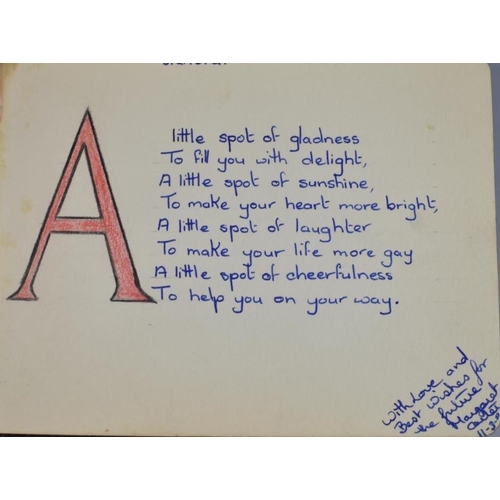 A little spot of gladness
To fill you with delight,
A little spot of sunshine,
To make your heart more bright,
A little spot of laughter
To make your life more gay
A little spot of cheerfulness
To help you on your way.
With Love and
Best wishes for
the future
Margaret